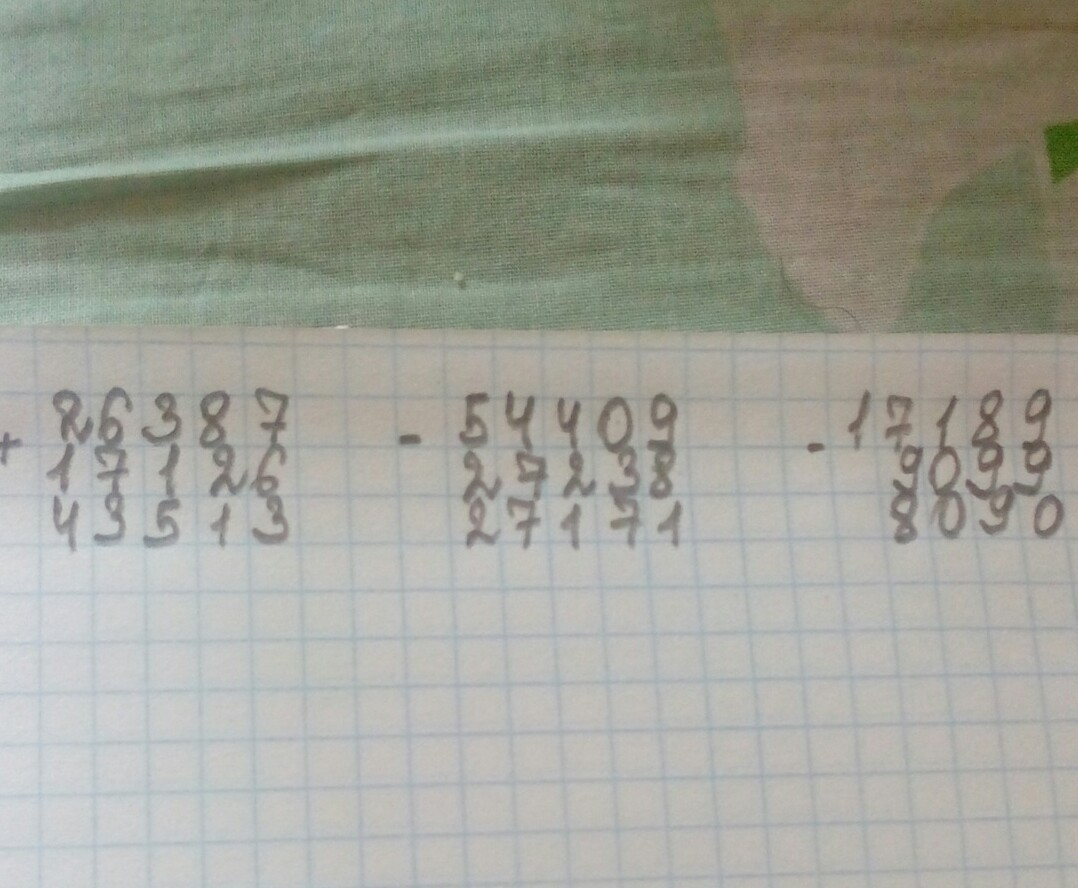 + 26387 - 54409 - 17189
17126 27238 9099
43513 27171 8090